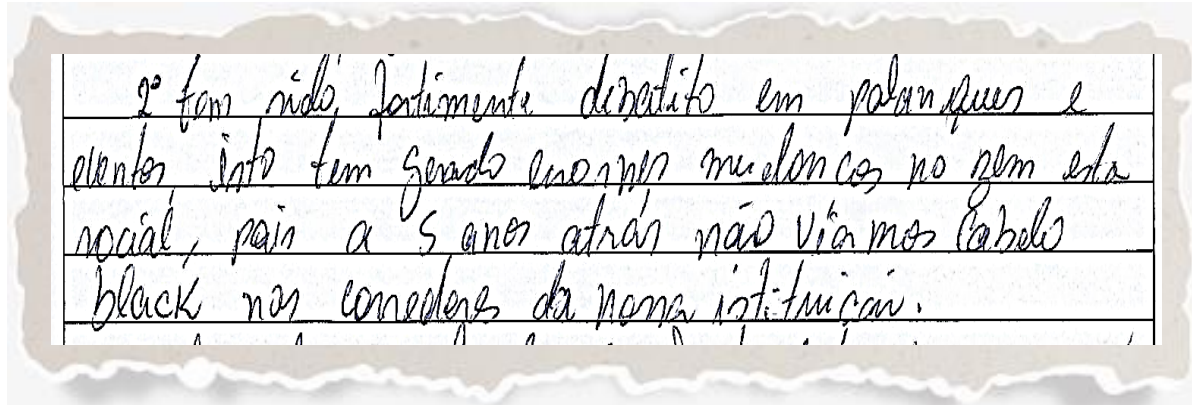 2º tem sido, fortimente debatito em palanques e
eventos, isto tem gerado enormes mudancas no bem esta
social, pois a 5 anos atrás não víamos cabelo
black nos corredores da nossa istituiçao.